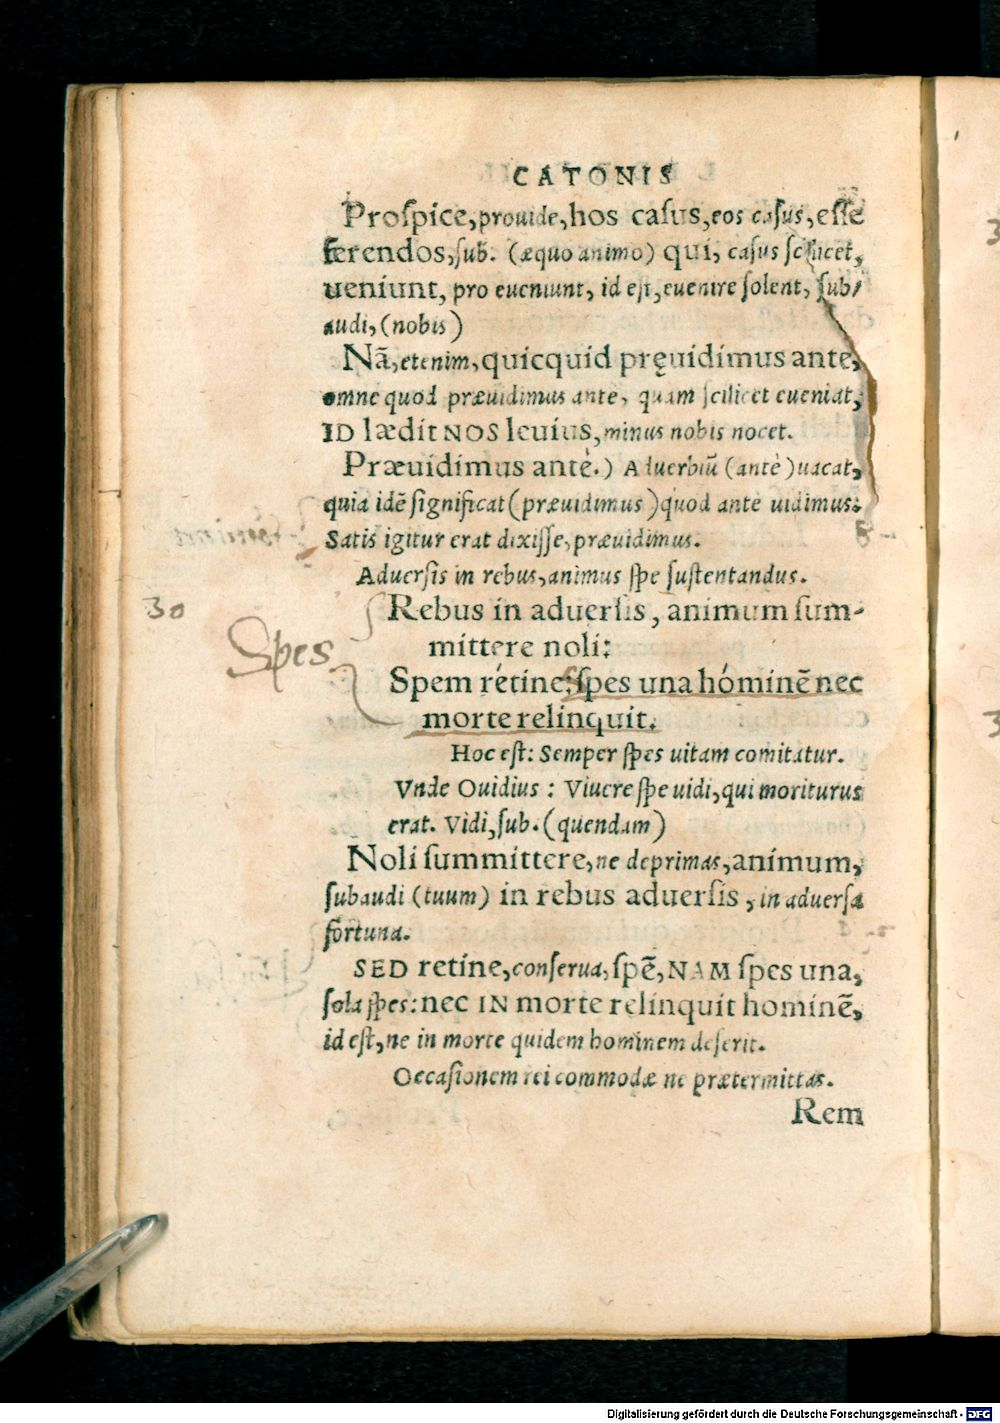 CATONIS
Proſpice, prouide, hos caſus, eos caſus, eſſe
ferendos, ſub. (æquo animo) qui, caſus ſcilicet,
ueniunt, pro eueniunt, id eſt, euenire ſolent, ſub/
audi, (nobis)
Nã, etenim, quicquid pręuidimus ante,
omne quod præuidimus ante, quam ſcilicet eueniat,
ID lædit NOS leuius, minus nobis nocet.
Præuidimus antè.) Aduerbiũ (antè) uacat,
quia idẽ ſignificat (præuidimus) quod ante uidimus:
Satis igitur erat dixiſſe, præuidimus.
Aduerſis in rebus, animus ſpe ſuſtentandus.
30
Rebus in aduerſis, animum ſum-
mittere noli:
Spes
Spem rétine, ſpes una hóminẽ nec
morte relinquit.
Hoc eſt: Semper ſpes uitam comitatur.
Vnde Ouidius: Viuere ſpe uidi, qui moriturus
erat. Vidi, ſub. (quendam)
Noli ſummittere, ne deprimas, animum,
ſubaudi (tuum) in rebus aduerſis, in aduerſa
fortuna.
SED retine, conſerua, ſpẽ, NAM ſpes una,
ſola ſpes: nec IN morte relinquit hominẽ,
id eſt, ne in morte quidem hominem deſerit.
Occaſionem rei commodæ ne prætermittas.
Rem
Digitalisierung gefördert durch die Deutsche Forschungsgemeinschaft - DFG